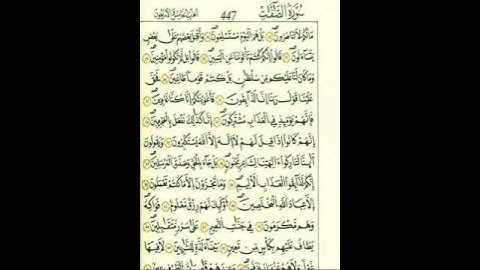 سُورَةُ الصَّافَّاتِ 447 الحزب الخامس والأربعون
مَا لَكُمْ لَا تَنَاصَرُونَ بَلْ هُمُ الْيَوْمَ مُسْتَسْلِمُونَ وَأَقْبَلَ بَعْضُهُمْ عَلَىٰ بَعْضٍ
يَتَسَاءَلُونَ قَالُوا إِنَّكُمْ كُنْتُمْ تَأْتُونَنَا عَنِ الْيَمِينِ قَالُوا بَلْ لَمْ تَكُونُوا مُؤْمِنِينَ
وَمَا كَانَ لَنَا عَلَيْكُمْ مِنْ سُلْطَانٍ بَلْ كُنْتُمْ قَوْمًا طَاغِينَ فَحَقَّ
عَلَيْنَا قَوْلُ رَبِّنَا إِنَّا لَذَائِقُونَ فَأَغْوَيْنَاكُمْ إِنَّا كُنَّا غَاوِينَ
فَإِنَّهُمْ يَوْمَئِذٍ فِي الْعَذَابِ مُشْتَرِكُونَ إِنَّا كَذَٰلِكَ نَفْعَلُ بِالْمُجْرِمِينَ
إِنَّهُمْ كَانُوا إِذَا قِيلَ لَهُمْ لَا إِلَٰهَ إِلَّا اللَّهُ يَسْتَكْبِرُونَ وَيَقُولُونَ
أَئِنَّا لَتَارِكُوا آلِهَتِنَا لِشَاعِرٍ مَجْنُونٍ بَلْ جَاءَ بِالْحَقِّ وَصَدَّقَ الْمُرْسَلِينَ
إِنَّكُمْ لَذَائِقُوا الْعَذَابِ الْأَلِيمِ وَمَا تُجْزَوْنَ إِلَّا مَا كُنْتُمْ تَعْمَلُونَ
إِلَّا عِبَادَ اللَّهِ الْمُخْلَصِينَ أُولَٰئِكَ لَهُمْ رِزْقٌ مَعْلُومٌ فَوَاكِهُ
وَهُمْ مُكْرَمُونَ فِي جَنَّاتِ النَّعِيمِ عَلَىٰ سُرُرٍ مُتَقَابِلِينَ
يُطَافُ عَلَيْهِمْ بِكَأْسٍ مِنْ مَعِينٍ بَيْضَاءَ لَذَّةٍ لِلشَّارِبِينَ لَا فِيهَا
غَوْلٌ وَلَا هُمْ عَنْهَا يُنْزَفُونَ وَعِنْدَهُمْ